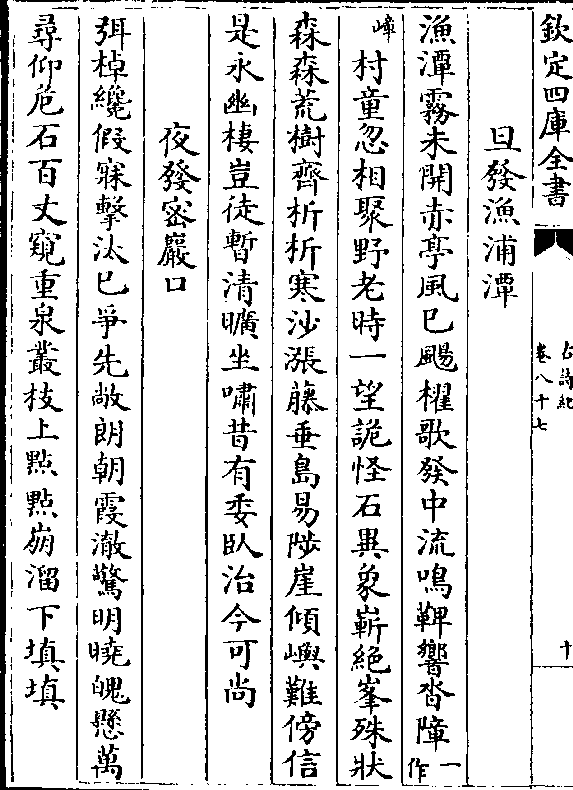 欽定四庫全書
古詩紀
卷八十七
十
旦發漁浦潭
漁潭霧未開赤亭風已颺櫂歌發中流鳴鞞響沓障一作
嶂村童忽相聚野老時一望詭怪石異象嶄絶峯殊狀
森森荒樹齊析析寒沙漲藤垂島易陟崖傾嶼難傍信
是永幽棲豈徒暫清曠坐嘯昔有委臥治今可尚
夜發密巖口
弭棹纔假寐擊汰已爭先敞朗朝霞澈驚明曉魄懸萬
尋仰危石百丈窺重泉叢枝上點點崩溜下填填